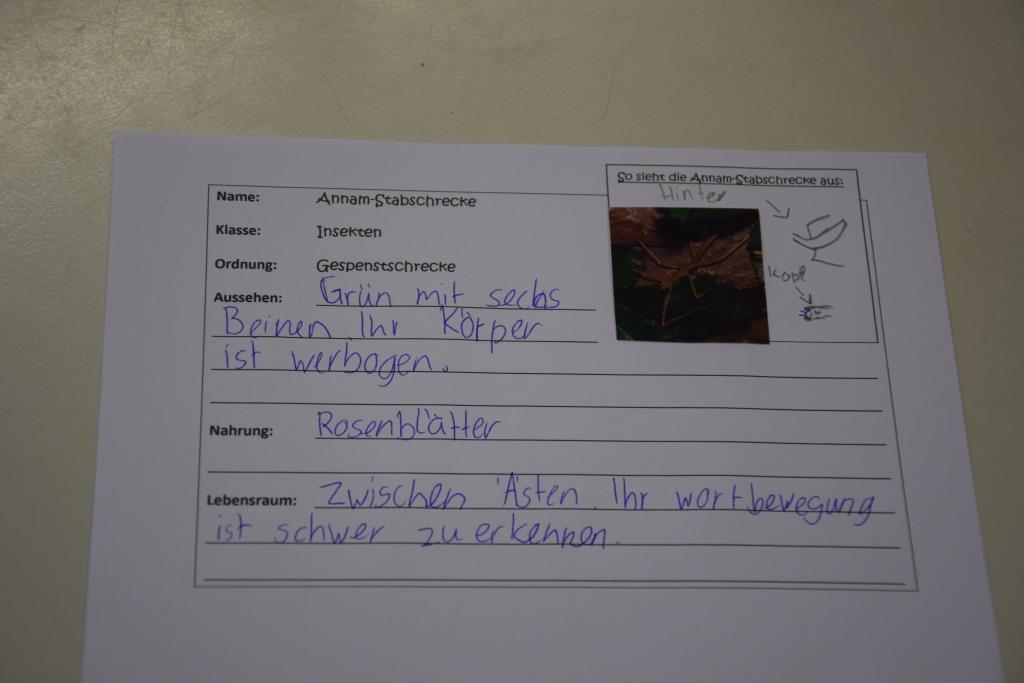 So sieht die Annam-Stabschrecke aus:
Hinter
Kopf
Name: Annam-Stabschrecke
Klasse: Insekten
Ordnung: Gespenstschrecke
Aussehen: Grün mit sechs
Beinen Ihr Körper
ist werbogen.
Nahrung: Rosenblätter
Lebensraum: Zwischen Ästen. Ihr wortbewegung
ist schwer zu erkennen.